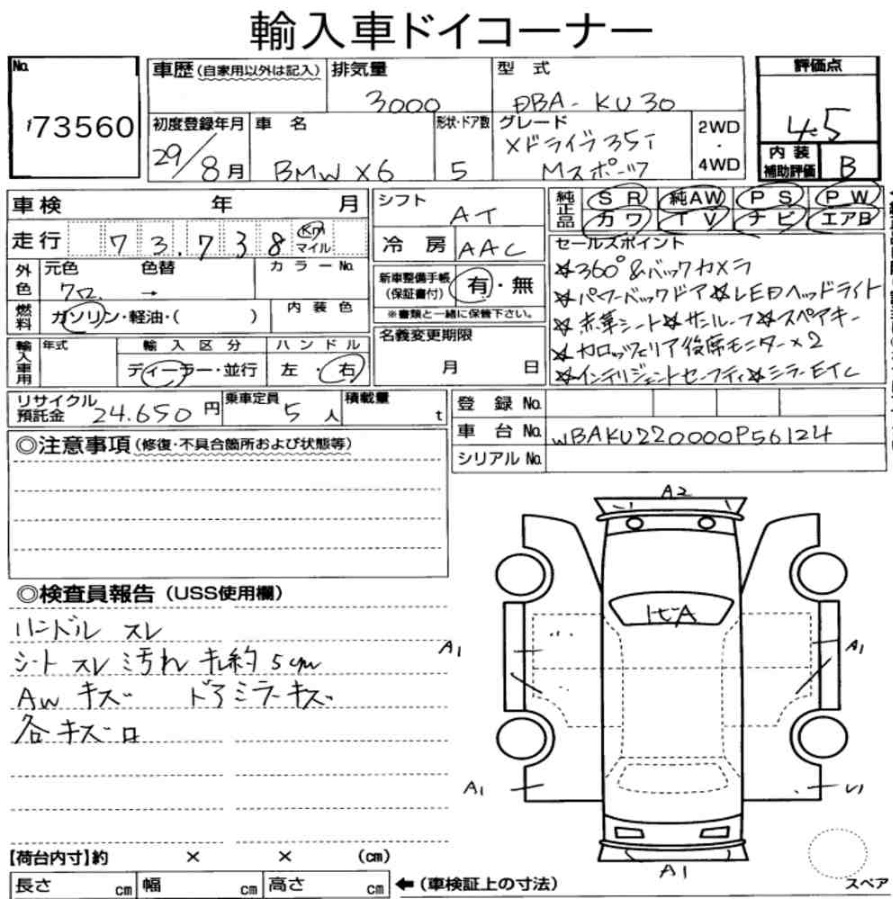 輸入車ドイコーナー
No. 73560
車歴 (自家用以外は記入) 排気量 3000 型式 DBA-KU30 評価点 4.5
初度登録年月 29/8月 車名 BMW X6 形状・ドア数 5 グレード Xドライブ35i Mスポーツ 2WD・4WD 内装補助評価 B
車検 年 月 シフト AT 純正品 SR 純AW PS PW
カワ TV ナビ エアB
走行 73.738 Km マイル 冷房 AAC セールスポイント
☆360°&バックカメラ
外色 元色 クロ 色替 → カラーNo. 新車整備手帳 (保証書付) 有・無
☆パワーバックドア ☆LEDヘッドライト
※書類と一緒に保管下さい。
燃料 ガソリン・軽油・( ) 内装色 名義変更期限 月 日
☆赤革シート ☆サンルーフ ☆スペアキー
☆カロッツェリア後席モニター×2
輸入車用 年式 輸入区分 ディーラー・並行 ハンドル 左・右
☆インテリジェントセーフティ ☆ミラーETC
リサイクル預託金 24.650円 乗車定員 5人 積載量 t
登録No.
車台No. WBAKU220000P56124
シリアルNo.
◎注意事項 (修復・不具合箇所および状態等)
◎検査員報告 (USS使用欄)
ハンドル スレ
シート スレ 汚れ キレ約5cm
AW キズ ドアミラーキズ
各キズ
A2
A1
A1
A1
A1
スペア
【荷台内寸】約 × × (cm)
長さ cm 幅 cm 高さ cm ← (車検証上の寸法)